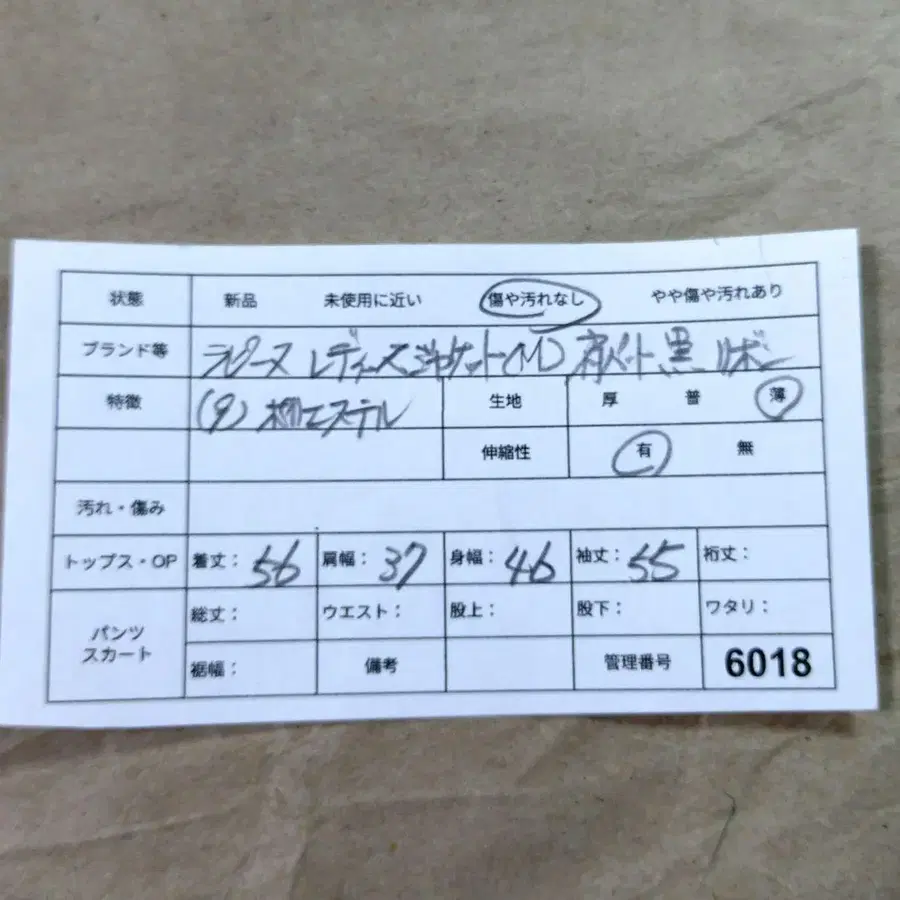 状態 新品 未使用に近い 傷や汚れなし やや傷や汚れあり
ブランド等 ラピーヌ レディースジャケット(M) 黒 リボン
特徴 (9) ポリエステル 生地 厚 普 薄
伸縮性 有 無
汚れ・傷み
トップス・OP 着丈: 56 肩幅: 37 身幅: 46 袖丈: 55 裄丈:
パンツ スカート 総丈: ウエスト: 股上: 股下: ワタリ:
裾幅: 備考 管理番号 6018